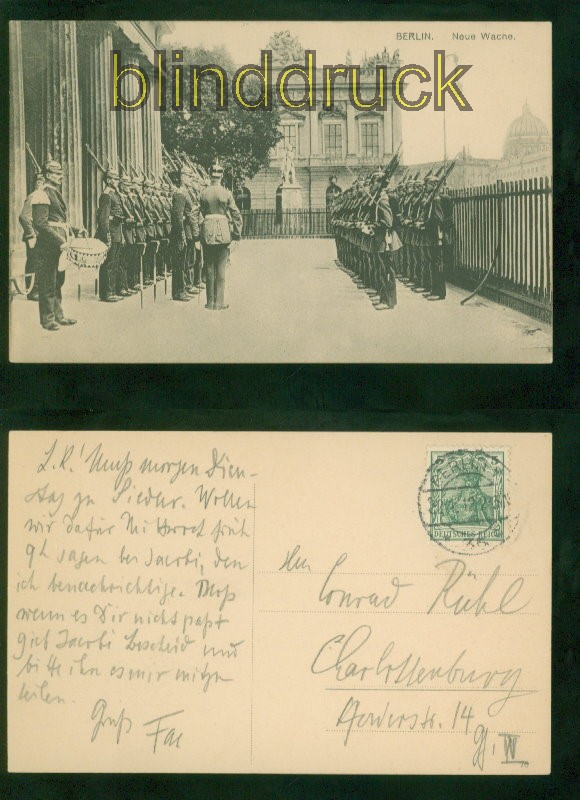 BERLIN. Neue Wache.
blinddruck
L. R.! Muß morgen Diens-
tag zu Siedler. Wollen
wir dafür früh
9h sagen bei Jacobi, den
ich benachrichtige.
wenn es Dir nicht paßt
gieb Jacobi Bescheid und
bitte ihn es mir mitzu
teilen.
Gruß
BERLIN
DEUTSCHES REICH
Herrn
Conrad Rühl
Charlottenburg
14
G. IV